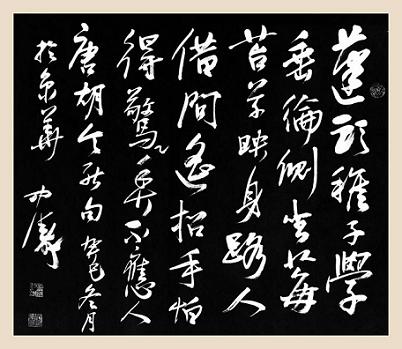 蓬頭稚子學
垂綸側坐莓
苔草映身路人
借問遙招手怕
得驚魚不應人
唐胡令能句 癸巳冬月
於京華